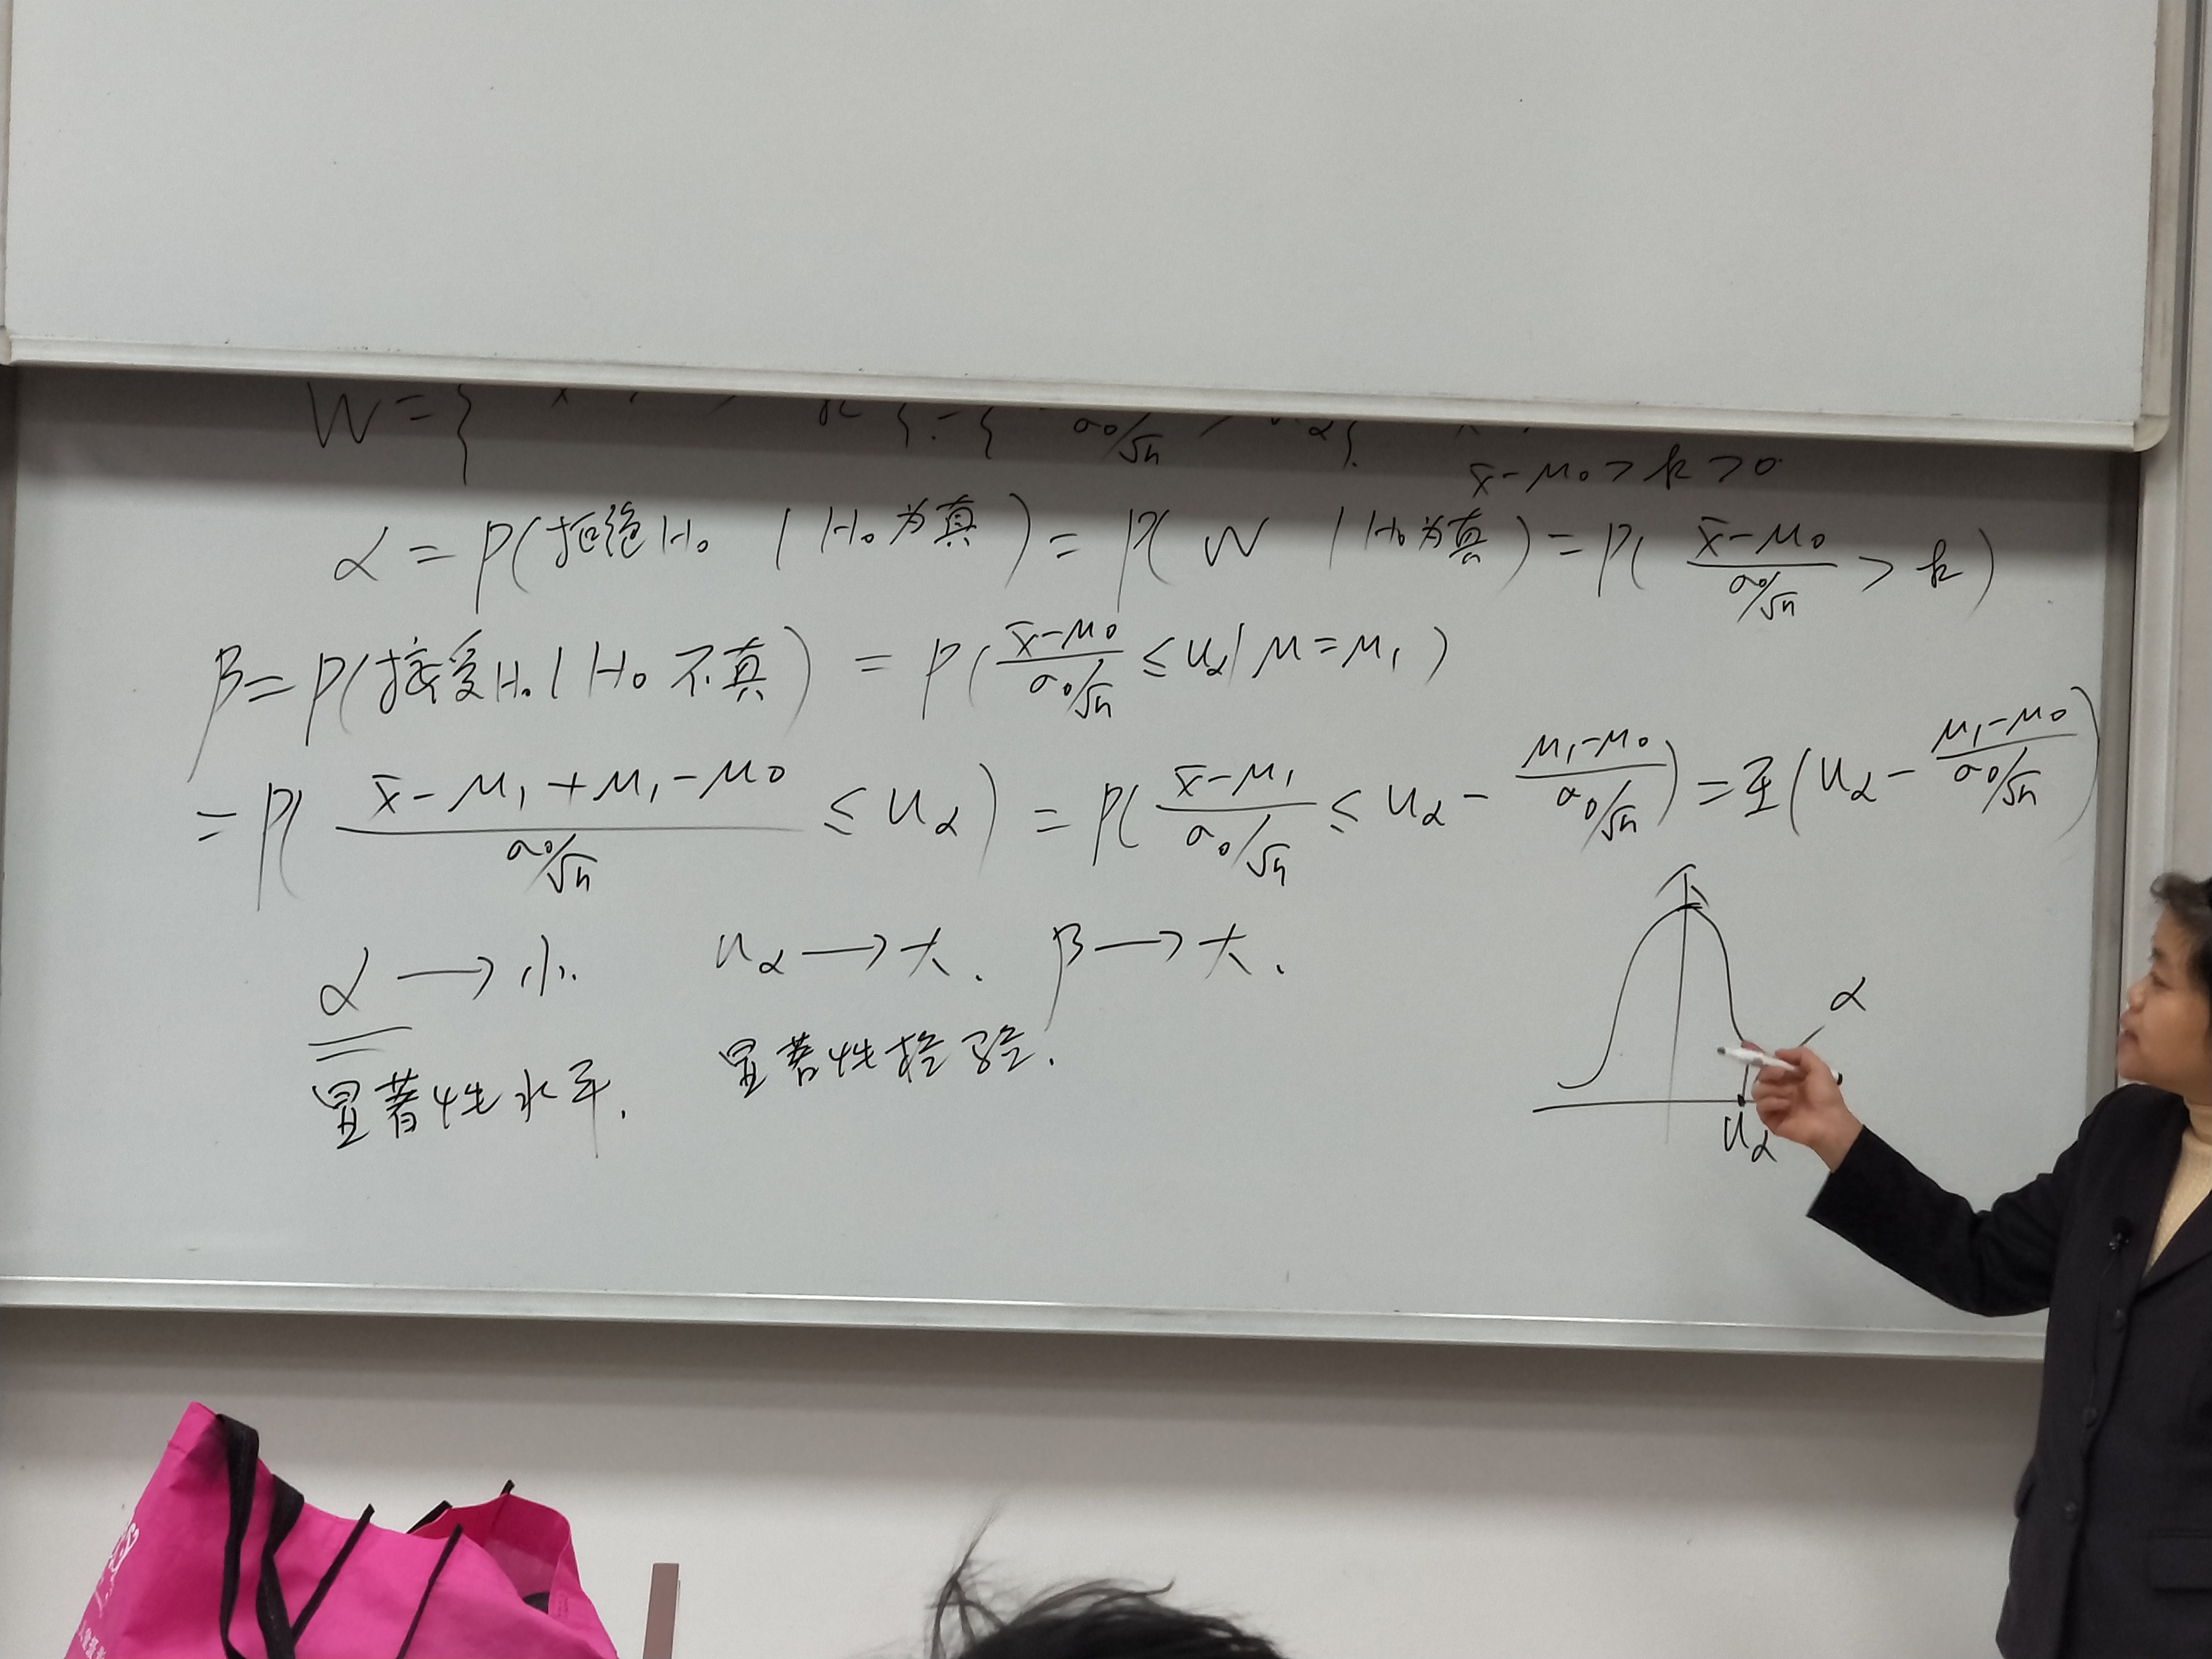 W = {
σ0/√n
x̄-μ0 > k > 0
α = P(拒绝H0 | H0为真) = P( W | H0为真) = P( (x̄-μ0)/(σ0/√n) > k )
β = P(接受H0 | H0 不真) = P( (x̄-μ0)/(σ0/√n) ≤ uα | μ = μ1 )
= P( (x̄-μ1+μ1-μ0)/(σ0/√n) ≤ uα ) = P( (x̄-μ1)/(σ0/√n) ≤ uα - (μ1-μ0)/(σ0/√n) ) = Φ( uα - (μ1-μ0)/(σ0/√n) )
α → 小. uα → 大. β → 大.
显著性水平. 显著性检验.
α
uα